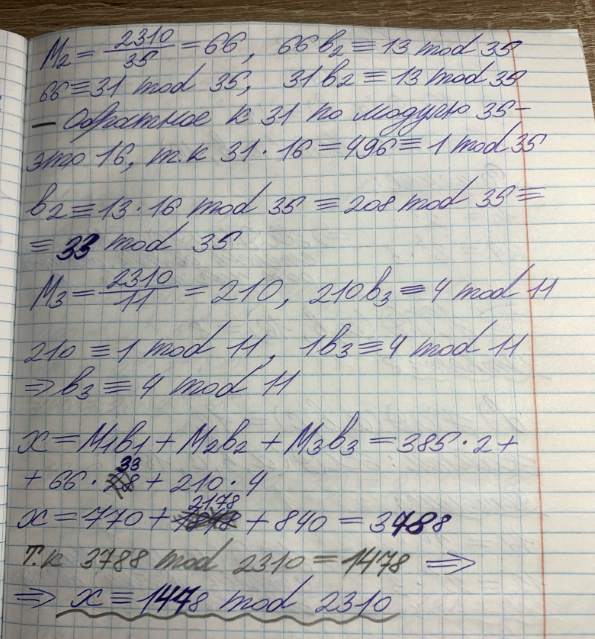 M₂ = 2310/35 = 66, 66b₂ ≡ 13 mod 35
66 ≡ 31 mod 35, 31b₂ ≡ 13 mod 35
— Обратное к 31 по модулю 35 –
это 16, т.к 31 · 16 = 496 ≡ 1 mod 35
b₂ ≡ 13 · 16 mod 35 ≡ 208 mod 35 ≡
≡ 33 mod 35
M₃ = 2310/11 = 210, 210b₃ ≡ 4 mod 11
210 ≡ 1 mod 11, 1b₃ ≡ 4 mod 11
⇒ b₃ ≡ 4 mod 11
x = M₁b₁ + M₂b₂ + M₃b₃ = 385 · 2 +
+ 66 · 33 + 210 · 4
x = 770 + 2178 + 840 = 3788
Т.к 3788 mod 2310 = 1478 ⇒
⇒ x ≡ 1478 mod 2310